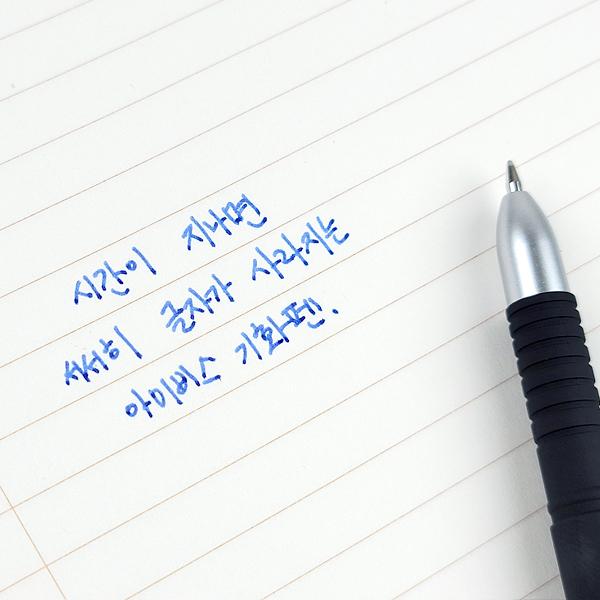 시간이 지나면
서서히 글자가 사라지는
아이비스 기화펜.